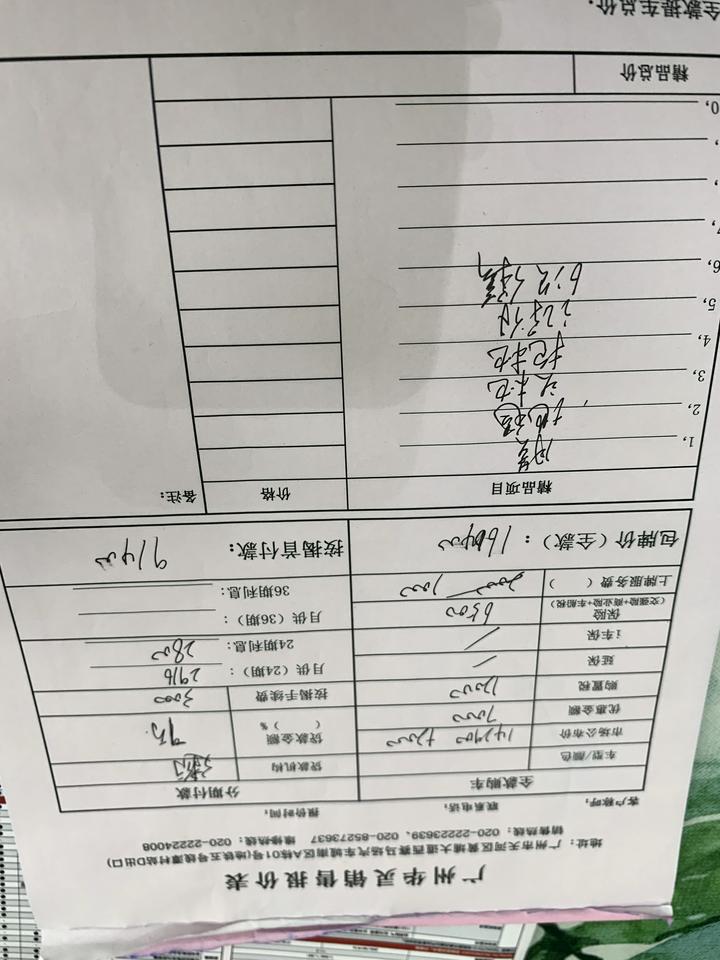 广州华灵销售报价表
地址：广州市天河区黄埔大道西赛马场汽车城南区A栋01号(地铁五号线潭村站D出口)
销售热线：020-22223639、020-85273637 维修热线：020-22224008
客户称呼： 联系电话： 报价时间：
全款购车 分期付款
车型/颜色 贷款机构
市场公布价 147900 +2000 贷款金额 ( )% 9万
优惠金额 7000
购置税 12000 按揭手续费 3000
延保 / 月供（24期）： 2916
i车保 / 24期利息： 2800
保险 (交强险+商业险+车船税) 6500 月供（36期）：
上牌服务费（ ） 2000 1000 36期利息：
包牌价（全款）： 按揭首付款： 91400
精品项目 价格 备注：
1,
2, 地毯
3,
4,
5,
6,
7,
精品总价
全款提车总价：